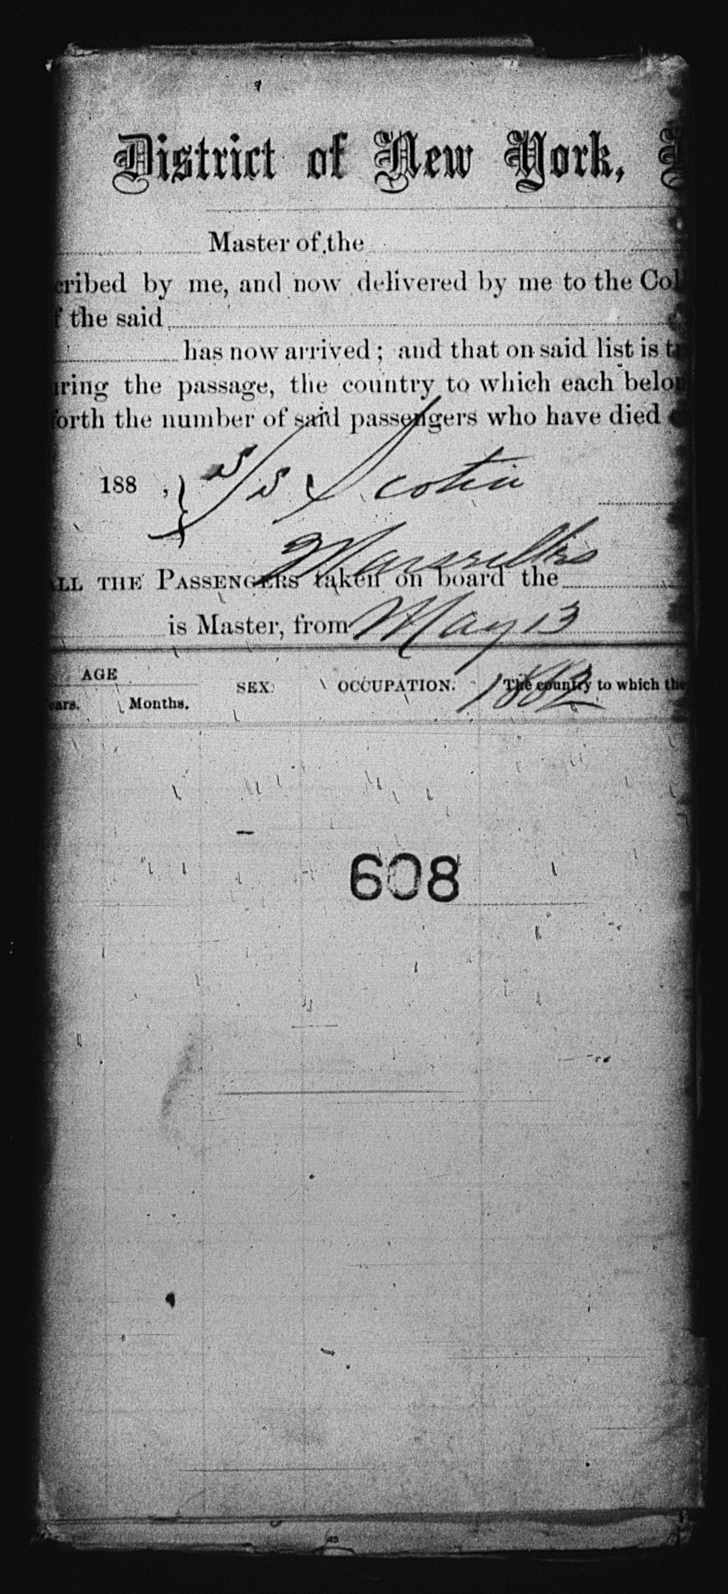 District of New York,
Master of the
cribed by me, and now delivered by me to the Col
f the said
has now arrived; and that on said list is t
uring the passage, the country to which each belon
forth the number of said passengers who have died
188 , } S/S Scotia
Marseilles
ALL THE PASSENGERS taken on board the
is Master, from May 13
1882
AGE SEX OCCUPATION. The country to which the
ears. Months.
608